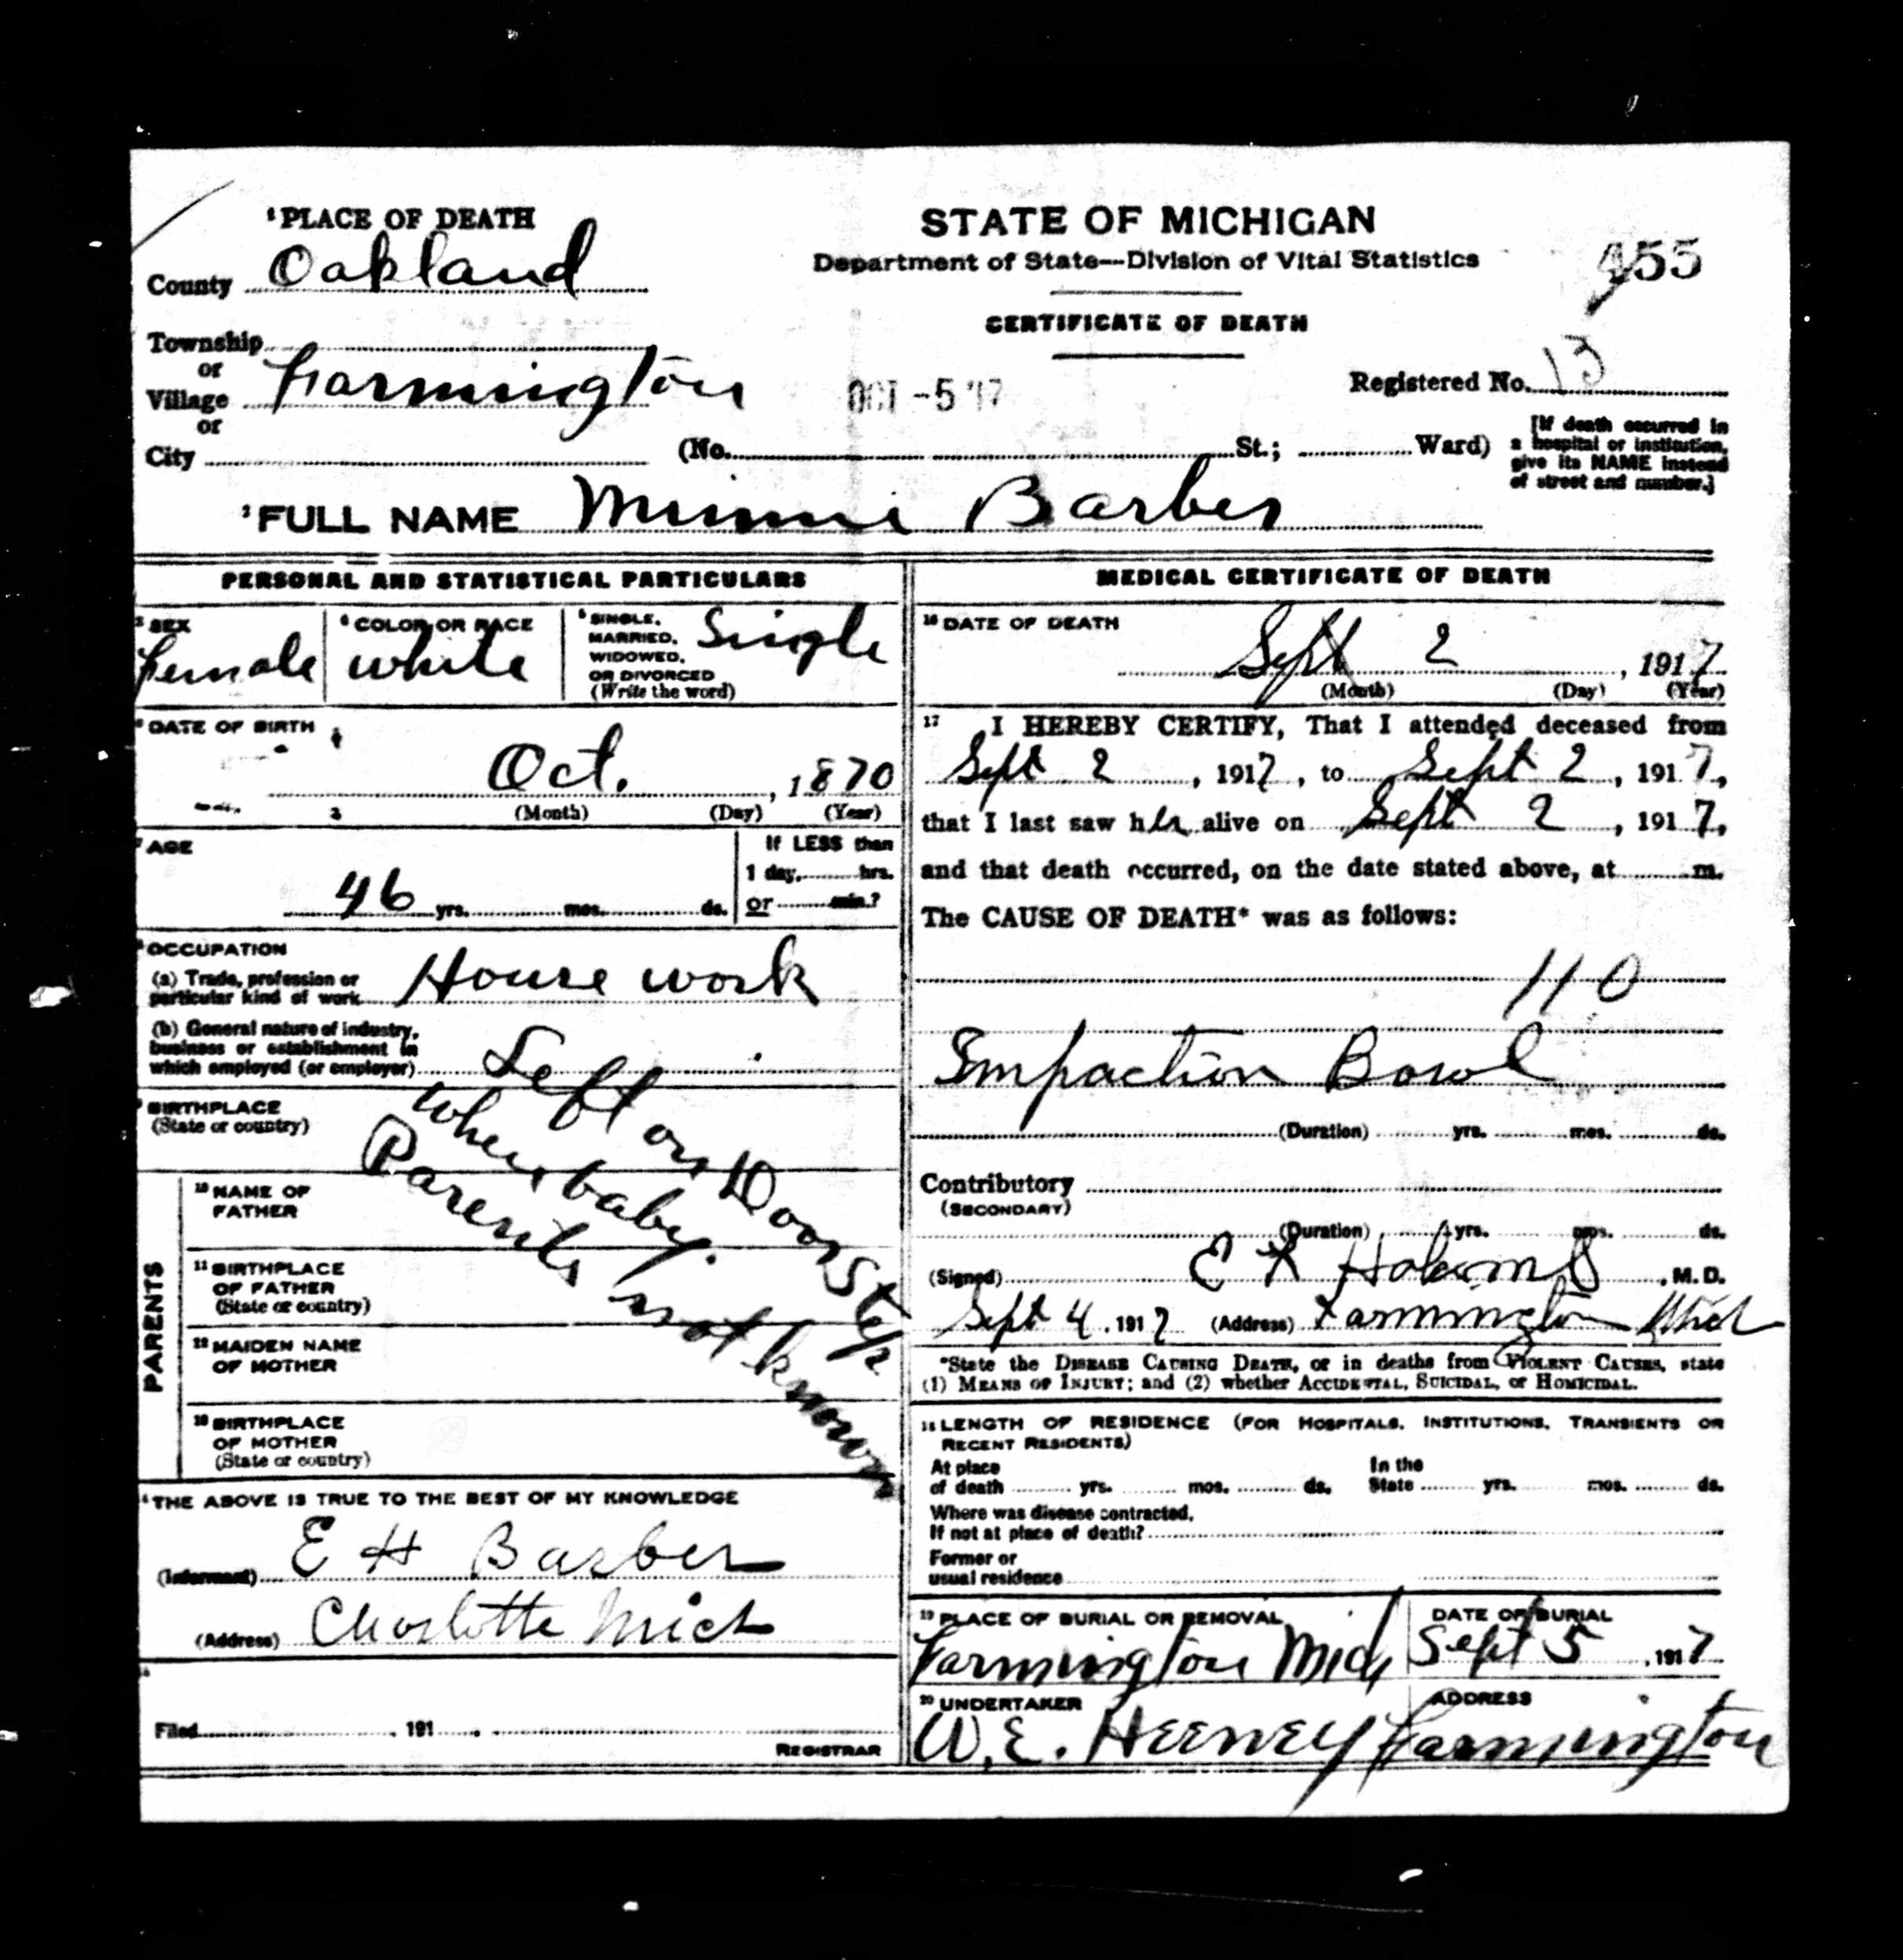 ¹PLACE OF DEATH
County Oakland
Township
or
Village Farmington
or
City
STATE OF MICHIGAN
Department of State—Division of Vital Statistics
455
CERTIFICATE OF DEATH
OCT -5 '17
Registered No. 13
(No. St.; Ward)
[If death occurred in
a hospital or institution,
give its NAME instead
of street and number.]
²FULL NAME Minnie Barber
PERSONAL AND STATISTICAL PARTICULARS
³ SEX
Female
⁴ COLOR OR RACE
White
⁵ SINGLE,
MARRIED,
WIDOWED,
OR DIVORCED
(Write the word)
Single
⁶ DATE OF BIRTH
Oct. , 1870
(Month) (Day) (Year)
⁷ AGE
46 yrs. mos. ds.
If LESS than
1 day, hrs.
or min.?
⁸ OCCUPATION
(a) Trade, profession or
particular kind of work House work
(b) General nature of industry,
business or establishment in
which employed (or employer)
⁹ BIRTHPLACE
(State or country)
Left on Door Step
when baby.
Parents not known
PARENTS
¹⁰ NAME OF
FATHER
¹¹ BIRTHPLACE
OF FATHER
(State or country)
¹² MAIDEN NAME
OF MOTHER
¹³ BIRTHPLACE
OF MOTHER
(State or country)
¹⁴ THE ABOVE IS TRUE TO THE BEST OF MY KNOWLEDGE
(Informant) E H Barber
(Address) Charlotte Mich
¹⁵
Filed , 191 .
REGISTRAR
MEDICAL CERTIFICATE OF DEATH
¹⁶ DATE OF DEATH
Sept 2 , 1917
(Month) (Day) (Year)
¹⁷ I HEREBY CERTIFY, That I attended deceased from
Sept 2 , 1917 , to Sept 2 , 1917,
that I last saw her alive on Sept 2 , 1917,
and that death occurred, on the date stated above, at m.
The CAUSE OF DEATH* was as follows:
110
Impaction Bowl
(Duration) yrs. mos. ds.
Contributory
(SECONDARY)
(Duration) yrs. mos. ds.
(Signed) E , M. D.
Sept 4 , 1917 (Address) Farmington Mich
*State the DISEASE CAUSING DEATH, or in deaths from VIOLENT CAUSES, state
(1) MEANS OF INJURY; and (2) whether ACCIDENTAL, SUICIDAL, or HOMICIDAL.
¹⁸ LENGTH OF RESIDENCE (FOR HOSPITALS, INSTITUTIONS, TRANSIENTS OR
RECENT RESIDENTS)
At place
of death yrs. mos. ds.
In the
State yrs. mos. ds.
Where was disease contracted,
If not at place of death?
Former or
usual residence
¹⁹ PLACE OF BURIAL OR REMOVAL
Farmington Mich
DATE OF BURIAL
Sept 5 , 1917
²⁰ UNDERTAKER
W. E. HEENEY
ADDRESS
Farmington